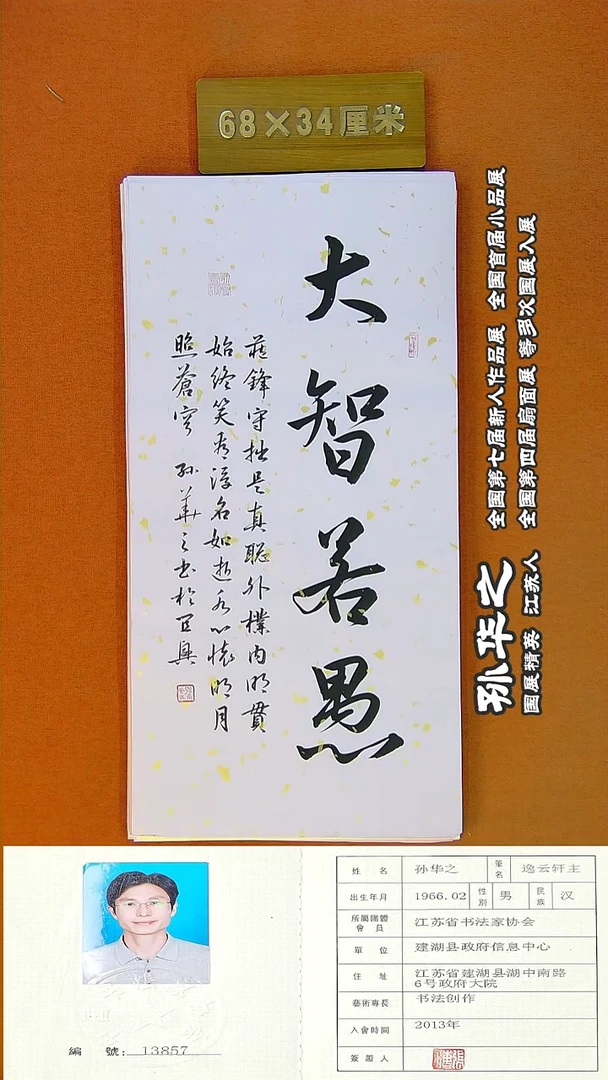 68×34厘米
大智若愚
藏鋒守拙是真聪外樸内明貫
始终笑看浮名如逝水心懐明月
照蒼穹 孙華之书於
孙华之
國展精英 江苏人
全国第七届新人作品展 全国首届小品展
全国第四届扇面展 等多次国展入展
編 號: 13857
姓 名 孙华之 筆名 逸云轩主
出生年月 1966.02 性别 男 民族 汉
所屬團體會員 江苏省书法家协会
單 位 建湖县政府信息中心
住 址 江苏省建湖县湖中南路
6号政府大院
藝術專長 书法创作
入會時間 2013年
簽證人